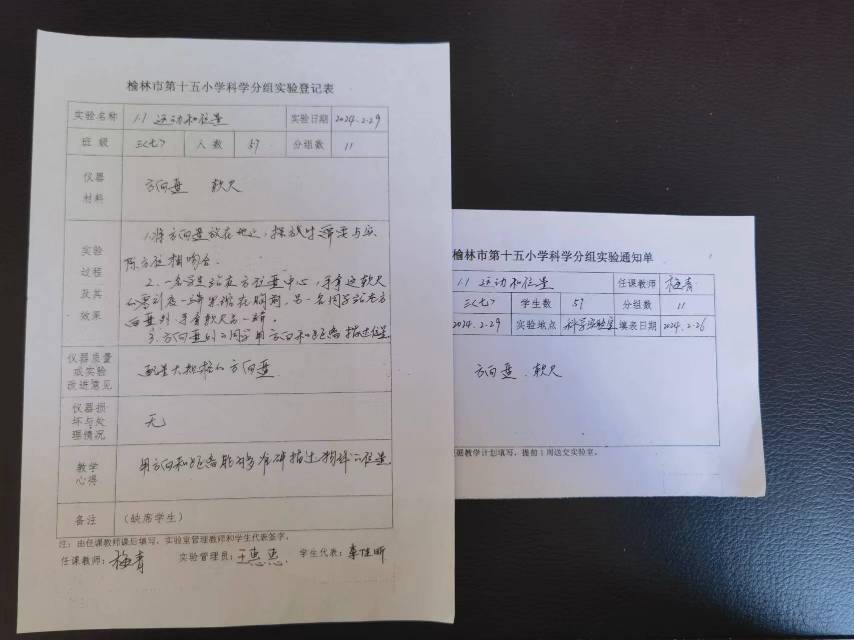 榆林市第十五小学科学分组实验登记表
实验名称 1.1 运动和位置 实验日期 2024.2.29
班 级 三〈七〉 人 数 57 分组数 11
仪器
材料
方向盘 软尺
实验
过程
及其
效果
1.将方向盘放在地上,摆放时需要与实
际方位相吻合。
2.一名学生站在方位盘中心,手拿这软尺
一端 在胸前,另一名同学站在方
向盘 手拿软尺另一端。
3.方向盘 同学用方向和距离描述位置。
仪器质量
或实验
改进意见
配置大规格的方向盘
仪器损
坏与处
理情况
无
教学
心得
用方向和距离能够准确描述物体的位置
备注 (缺席学生)
注:由任课教师课后填写,实验室管理教师和学生代表签字。
任课教师:梅青 实验管理员:王惠惠 学生代表:
榆林市第十五小学科学分组实验通知单
1.1 运动和位置 任课教师 梅青
三〈七〉 学生数 57 分组数 11
2024.2.29 实验地点 科学实验室 填表日期 2024.2.26
方向盘、软尺
据教学计划填写,提前1周送交实验室。